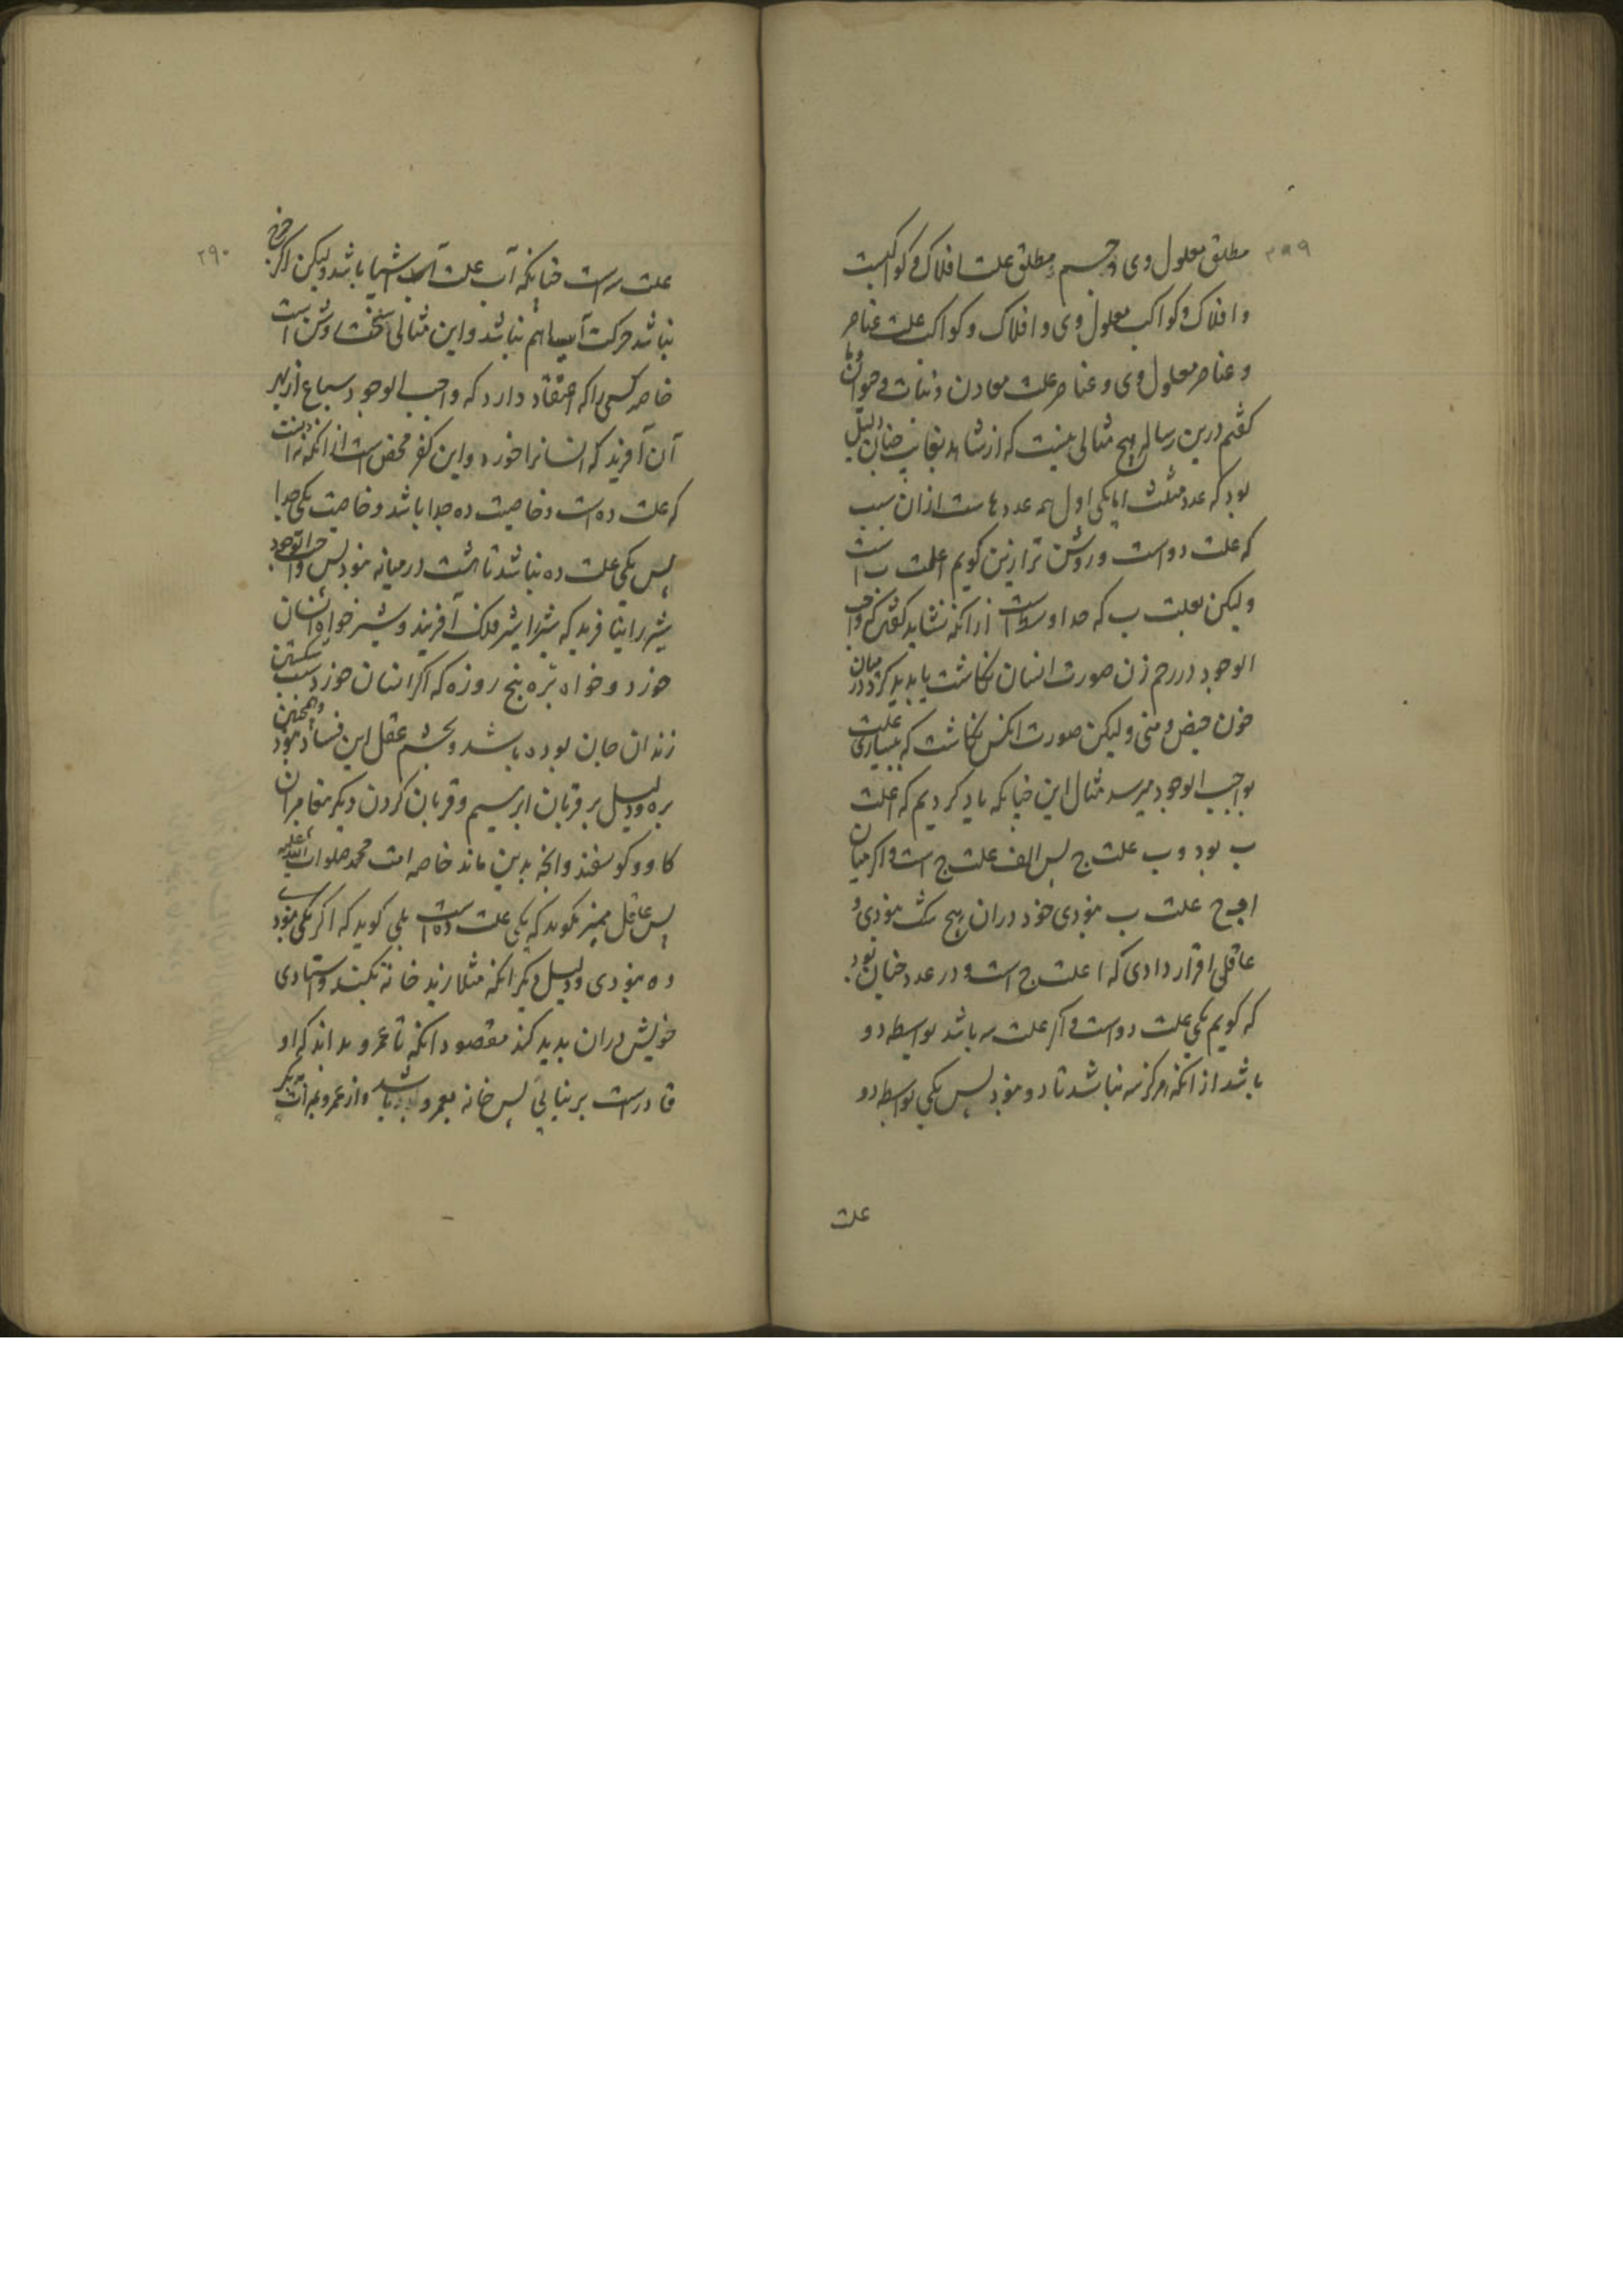 ۲۸۹
مطلق معلول وی و جسم مطلق علت افلاک و کواکبست
و افلاک و کواکب معلول وی و افلاک و کواکب علت عناصر
و عناصر معلول وی و عناصر علت معادن و نبات و حیوان و ما
گفتیم درین رساله هیچ مثالی نیست که از شاهد بغایب چنان دلیل
بود که عدد مثلث اما یکی اول همه عددهاست از آن سبب
که علت دو است و روشن تر ازین گویم ا علت ب است
ولیکن بعلت ب که حد اوسط است از آنکه نشاید گفتن که واجب
الوجود در رحم زن صورت انسان نگاشت یا پدید کرد در میان
خون حیض و منی ولیکن صورت آنکس نگاشت که بسیاری علت
بواجب الوجود میرسد مثال این چنانکه یاد کردیم که ا علت
ب بود و ب علت ج پس الف علت ج است و اگر میان
ا و ج علت ب نبودی خود در آن هیچ شک نبودی و
عاقلی اقرار دادی که ا علت ج است و در عدد چنان بود
که گویم یکی علت دو است و اگر علت سه باشد بواسطه دو
باشد از آنکه هرگز سه نباشد تا دو نبود پس یکی بواسطه دو
علت
۲۹۰
علت سه است چنانکه آب علت آسیا باشد ولیکن اگر چرخ
نباشد حرکت آسیا هم نباشد و این مثالی سخت روشن است
خاصه کسی را که اعتقاد دارد که واجب الوجود سباع از بهر
آن آفرید که انسانرا خورد و این کفر محض است از آنکه نه
که علت ده است و خاصیت ده جدا باشد و خاصیت یکی جدا
پس یکی علت ده نباشد تا هشت در میانه نبود پس واجب الوجود
شیر را نیافرید که شیر را شیر فلک آفرید و شیر خواه انسان
خورد و خواه بره پنج روزه که اگر انسان خورد سبب شکستن
زندان جان بوده باشد و بچشم عقل این فساد نبود و همچنین
بره و دلیل بر قربان ابرهیم و قربان کردن دیگر پیغامبران
گاو و گوسفند و آنچه بدین ماند خاصه امت محمد صلوات الله علیه
پس عاقل ممیز نگوید که یکی علت ده است بلی گوید که اگر یکی نبودی
ده نبودی و دلیل دیگر آنکه مثلا زید خانه بکند و استادی
خویش در آن پدید کند مقصود آنکه تا عمرو بداند که او
قادرست بر بنایی پس خانه بعمرو باشد و از عمرو